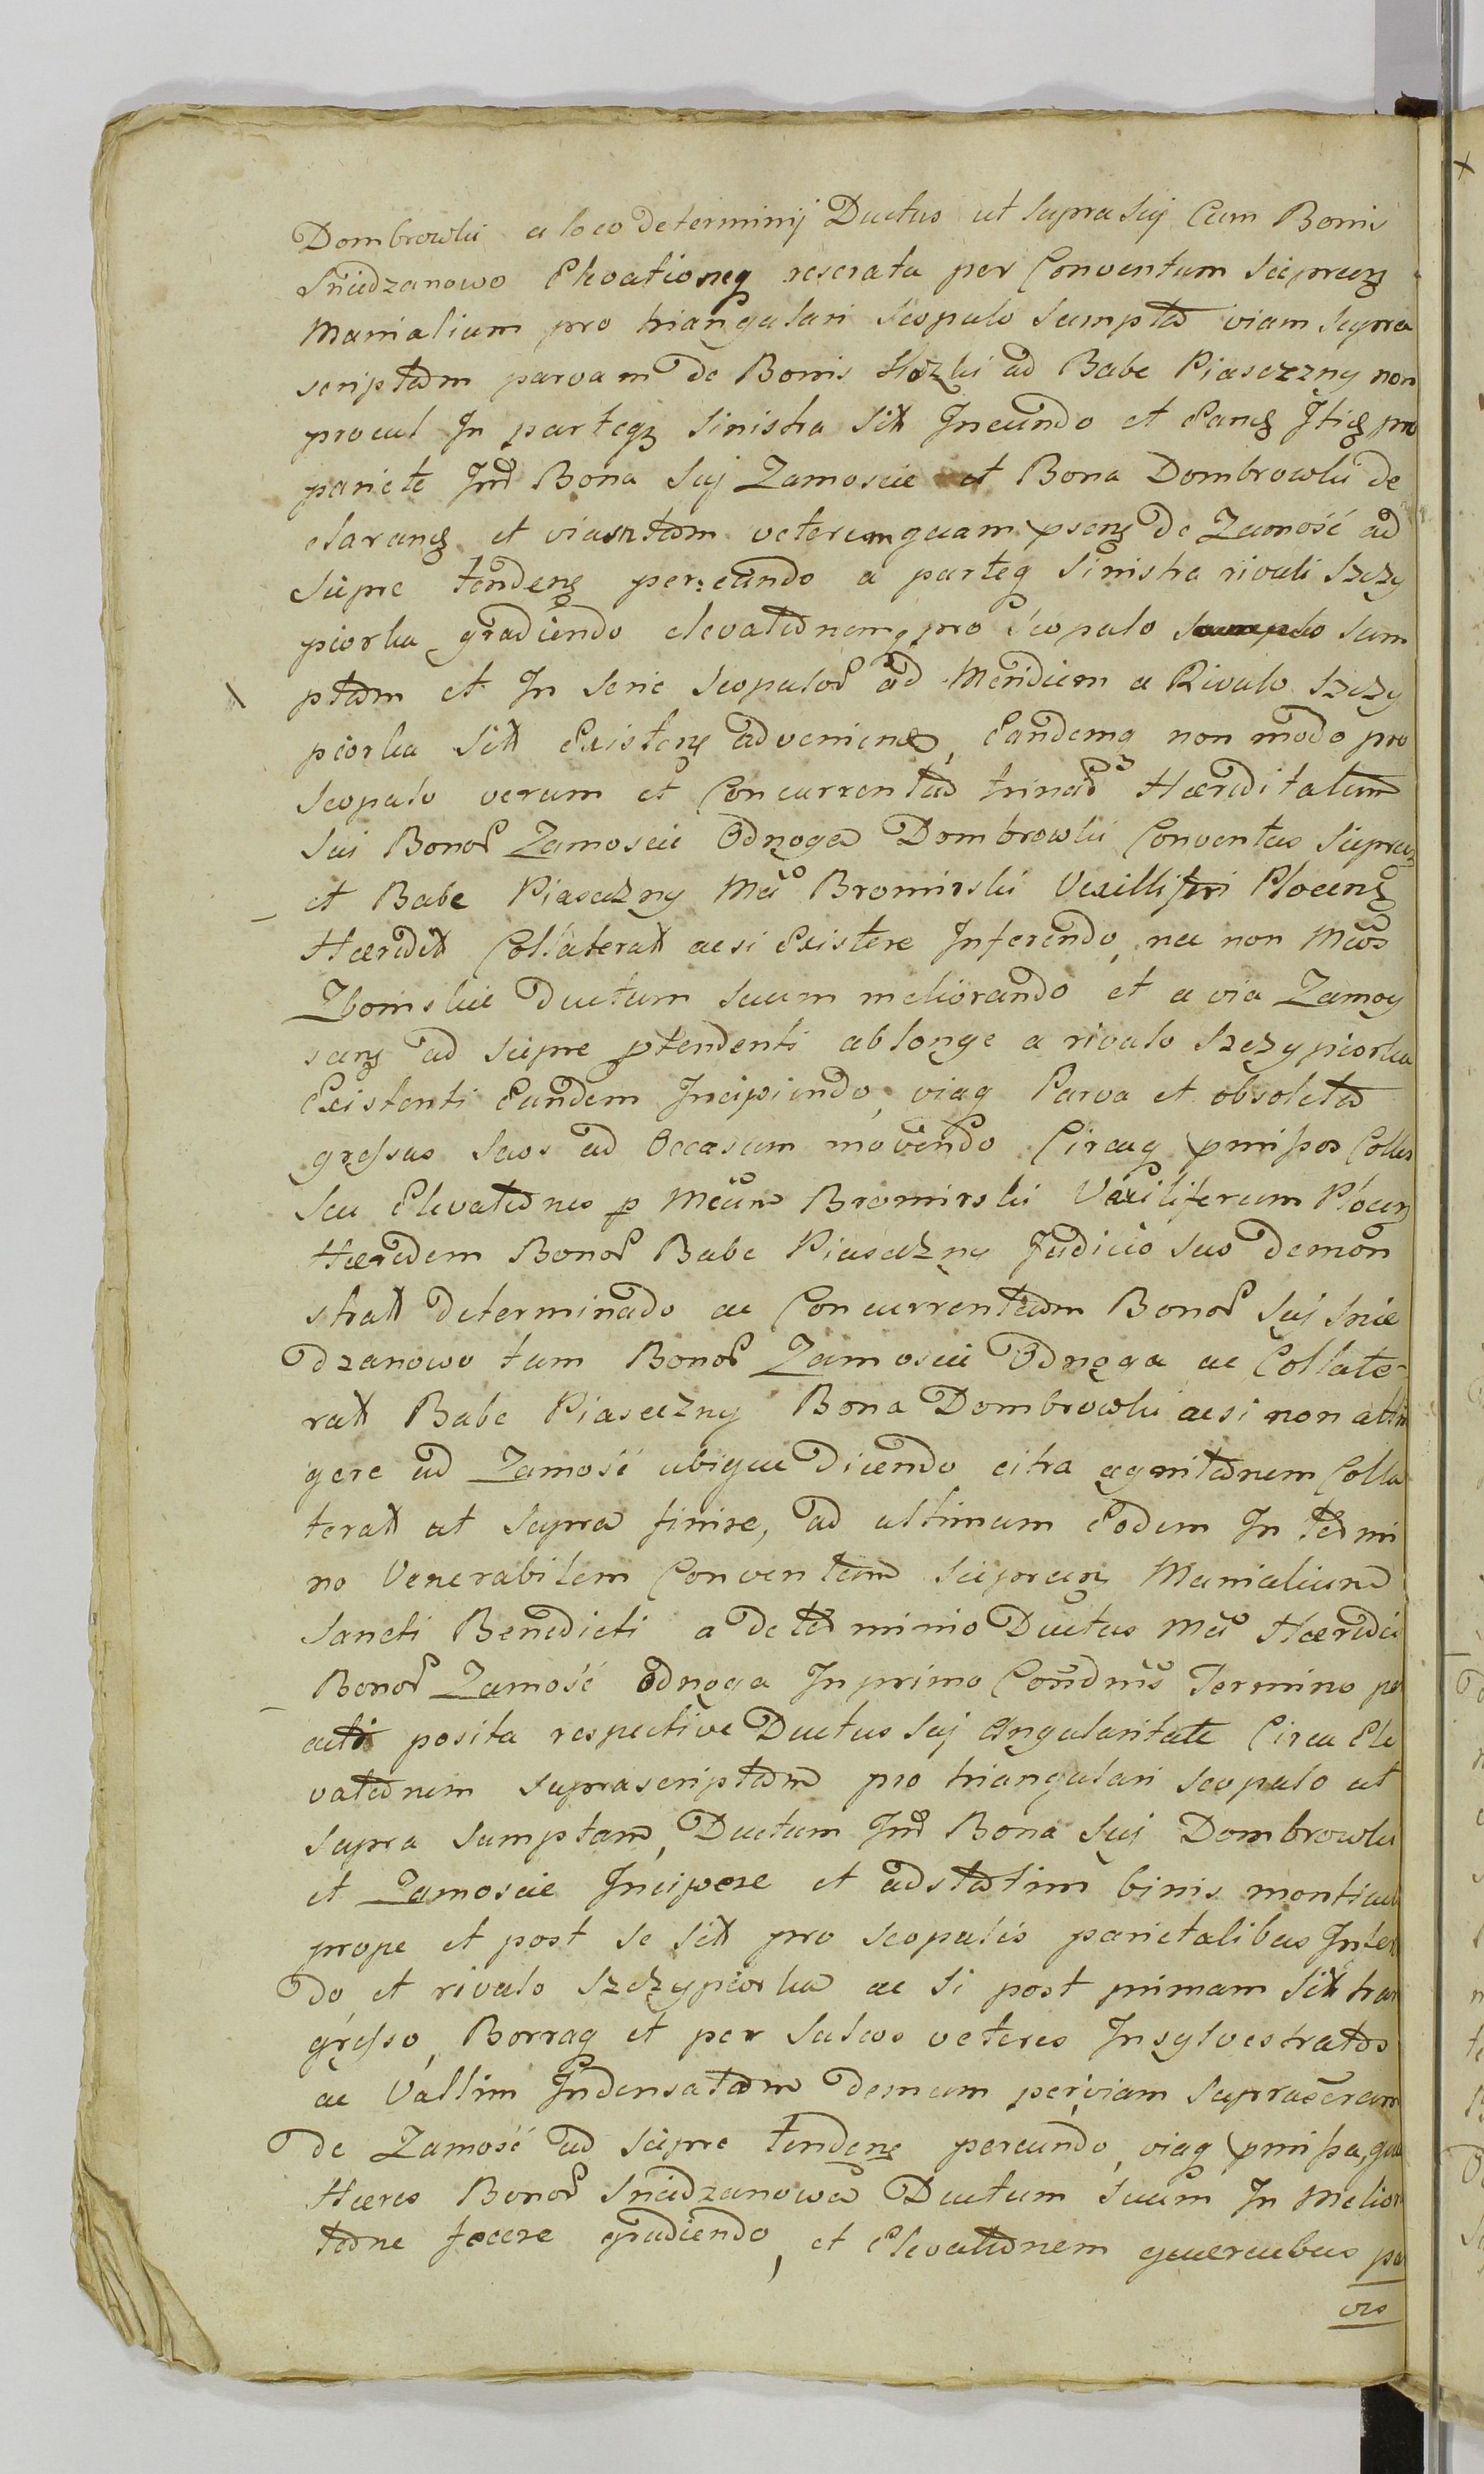 Dombrowki a loco determinij Ductus ut supra suj Cum Bonis
Sniedzanowo Elevationeq reserata per Conventum Sieprcen
Manialium pro triangulari scopulo sumpta viam supra
scriptam parvam de Bonis Kozki ad Babe Piaseczny non
procul In parteq sinistra sit Ineundo et Eanq pro
pariete Int Bona suj Zamoscie et Bona Dombrowki de
claranq et viam veteremquam psenz de Zamość ad
Siepre tendenz per:eundo a parteq sinistra rivuli Szczy
piorka gradiendo elevatonem pro scopulo sum
ptam et In serie scopulor ad Meridiem a Rivulo Szczy
piorka sit Existenz advenienz, Eandemq non modo pro
scopulo verum et Concurrentia trinar Hæreditatum
sui Bonor Zamoscie Odnoga Dombrowki Conventus Sieprcen
et Babe Piaseczny Mci Bromirski Vexilliferi Plocenz
Hæredit Collaterat acsi Existere Inferendo, nec non Mcos
Zboinskie Ductum suum meliorando et a via Zamoy
scenz ad Siepre ptendenti ab longe a rivulo Szczypiorka
Existenti Eundem Incipiendo, viaq Parva et obsoleta
gressus suos ad Occasum movendo Circaq pmissos Colles
seu Elevatones p Mcum Bromirski Vexiliferum Plocen
Hæredem Bonor Babe Piaseczny Judicio suo demon
strat determinado ac Concurrentiam Bonor suj Snie
dzanowo tum Bonor Zamoscie Odnoga ac Collate-
rat Babe Piaseczny Bona Dombrowki acsi non attin
gere ad Zamość ubique dicendo citra cognitonem Colla
terat ut supra finire, ad ultimum Eodem In termi
no Venerabilem Conventum Sieprcen Manialium
Sancti Benedicti a determinio Ductus Mci Hæredis
Bonor Zamość Odnoga In primo Condnis Termino per
acti posita respective Ductus suj Angularitate Circa Ele
vatonem suprascriptam pro triangulari scopulo ut
supra sumptam, Ductum Int Bona suj Dombrowki
et Zamoscie Incipere et adstatim binis monticul
prope et post se sit pro scopulis parietalibus Inferen
do, et rivulo Szczypiorka ac si post primam sit trans
gresso, Borraq et per sulcos veteres Insylvestratos
ac Vallim Indensatam demum per viam supraseram
de Zamość ad Siepre tendenz pereundo, viaq pmissa, qua
Hæres Bonor Sniedzanowa Ductum suum In Meliora
tone fecere gradiendo, et Elevatonem quercubus par
vis